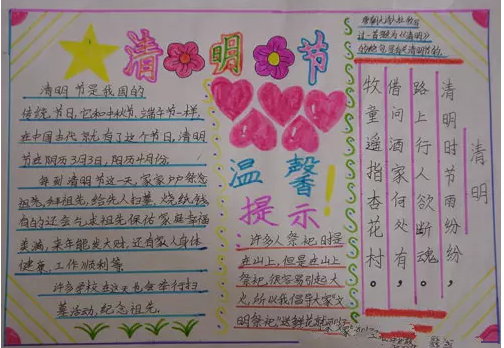 清明节
清明节是我国的
传统节日,它和中秋节、端午节一样
在中国古代就有了这个节日,清明
节在阴历3月3日,阳历4月份。
每到清明节这一天,家家户户祭念
祖先,拜祖先,给先人扫墓,烧纸钱
有的还会乞求祖先保佑家庭幸福
美满,来年能发大财,还有家人身体
健康,工作顺利等。
许多学校在这天也会举行扫
墓活动,纪念祖先。
温馨
提示!
许多人祭祀时是
在山上,但是在山上
祭祀,很容易引起火
火,所以我倡导大家"文
明祭祀"送鲜花就
清明
清明时节雨纷纷,
路上行人欲断魂。
借问酒家何处有,
牧童遥指杏花村。